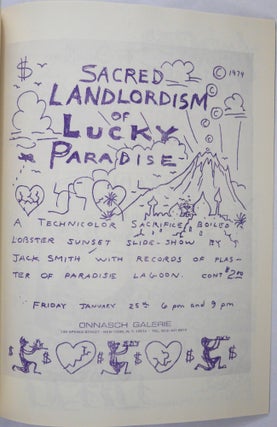 SACRED
LANDLORDISM
OF
LUCKY
PARADISE
© 1974
A TECHNICOLOR SACRIFICE BOILED
LOBSTER SUNSET SLIDE-SHOW BY
JACK SMITH WITH RECORDS OF PLAS-
TER OF PARADISE LAGOON. CONT $2.00
FRIDAY JANUARY 25th 6 pm and 9 pm
ONNASCH GALERIE
NEW YORK, N.Y.